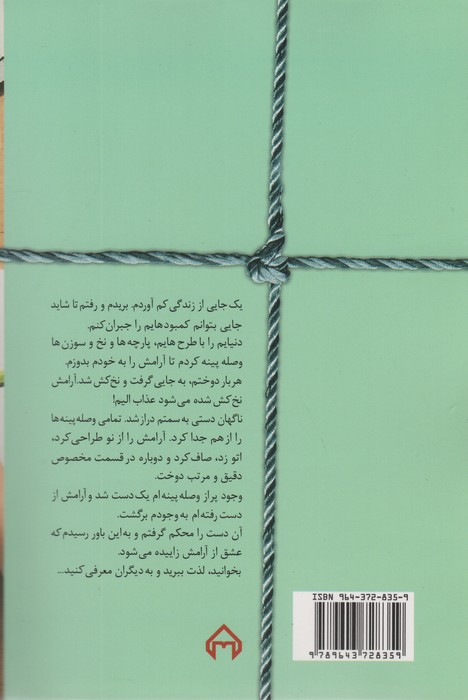 یک جایی از زندگی کم آوردم. بریدم و رفتم تا شاید
جایی بتوانم کمبودهایم را جبران کنم.
دنیایم را با طرح هایم، پارچه‌ها و نخ و سوزن ها
وصله پینه کردم تا آرامش را به خودم بدوزم.
هربار دوختم، به جایی گرفت و نخ‌کش شد. آرامش
نخ‌کش شده می‌شود عذاب الیم!
ناگهان دستی به سمتم دراز شد. تمامی وصله پینه‌ها
را از هم جدا کرد. آرامش را از نو طراحی کرد،
اتو زد، صاف کرد و دوباره در قسمت مخصوص
دقیق و مرتب دوخت.
وجود پر از وصله پینه‌ام یک دست شد و آرامش از
دست رفته‌ام به وجودم برگشت.
آن دست را محکم گرفتم و به این باور رسیدم که
عشق از آرامش زاییده می‌شود.
بخوانید، لذت ببرید و به دیگران معرفی کنید...
ISBN 964-372-835-9
9 789643 728359